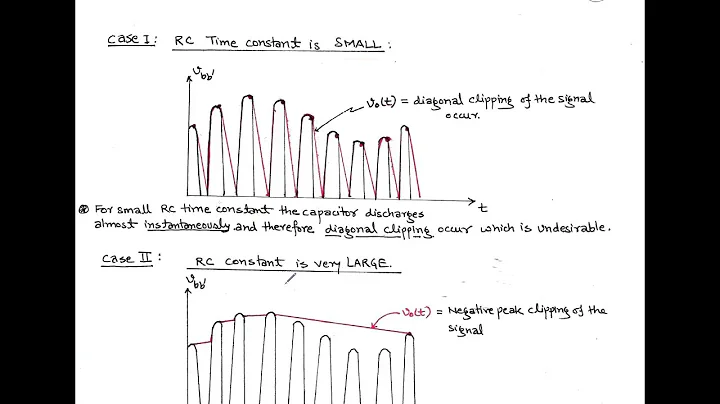 Case I: RC Time constant is SMALL:
Vbb'
vo(t) = diagonal clipping of the signal
occur.
t
⊛ For small RC time constant the capacitor discharges
almost instantaneously and therefore diagonal clipping occur which is undesirable.
Case II: RC constant is very LARGE.
Vbb'
vo(t) = Negative peak clipping of the
signal